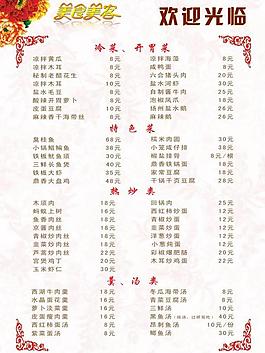 美食美客
欢迎光临
冷菜、开胃菜
凉拌黄瓜 8元 凉拌海藻 8元
凉拌木耳 8元 咸鸭蛋 8元
秘制老醋花生 8元 六合猪头肉 20元
盐水毛豆 8元 盐水河虾 30元
酸辣开胃萝卜 8元 自制酱牛肉 25元
皮蛋豆腐 8元 泡椒凤爪 18元
麻辣香干海带丝 8元 扬州盐水鹅 26元
麻辣鹅 26元
特色菜
臭桂鱼 68元 糯米肉圆 30元
小锅鲳鳊鱼 38元 小笼咸仔排 38元
铁板鱿鱼须 30元 椒盐排骨
三鲜长鱼煲 38元 鼎香铁锅蛋 18元
铁板牛柳 38元 家常豆腐 18元
鼎香大血鸡 38元 千锅千页豆腐 28元
热炒类
木须肉 18元 回锅肉 25元
蚂蚁上树 18元 西红柿炒蛋 18元
鱼香肉丝 18元 青椒炒蛋 18元
京酱肉丝 18元 韭菜炒蛋 18元
青椒炒肉丝 18元 洋葱炒蛋 18元
韭菜炒肉丝 18元 小葱炖蛋 18元
芦蒿炒肉丝 18元 青椒爆肥肠 28元
宫爆鸡丁 18元 木耳炒鸡蛋 18元
玉米虾仁 30元
羹、汤类
西湖牛肉羹 18元 冬瓜海带汤 8元
水晶蛋花羹 18元 青菜豆腐汤 8元
萝卜淡菜羹 18元 三鲜汤 10元
皮蛋腰片羹 18元 黑鱼汤 40元
西红柿蛋汤 8元 昂刺鱼汤 10元/份
紫菜蛋汤 8元 鲫鱼汤 30元